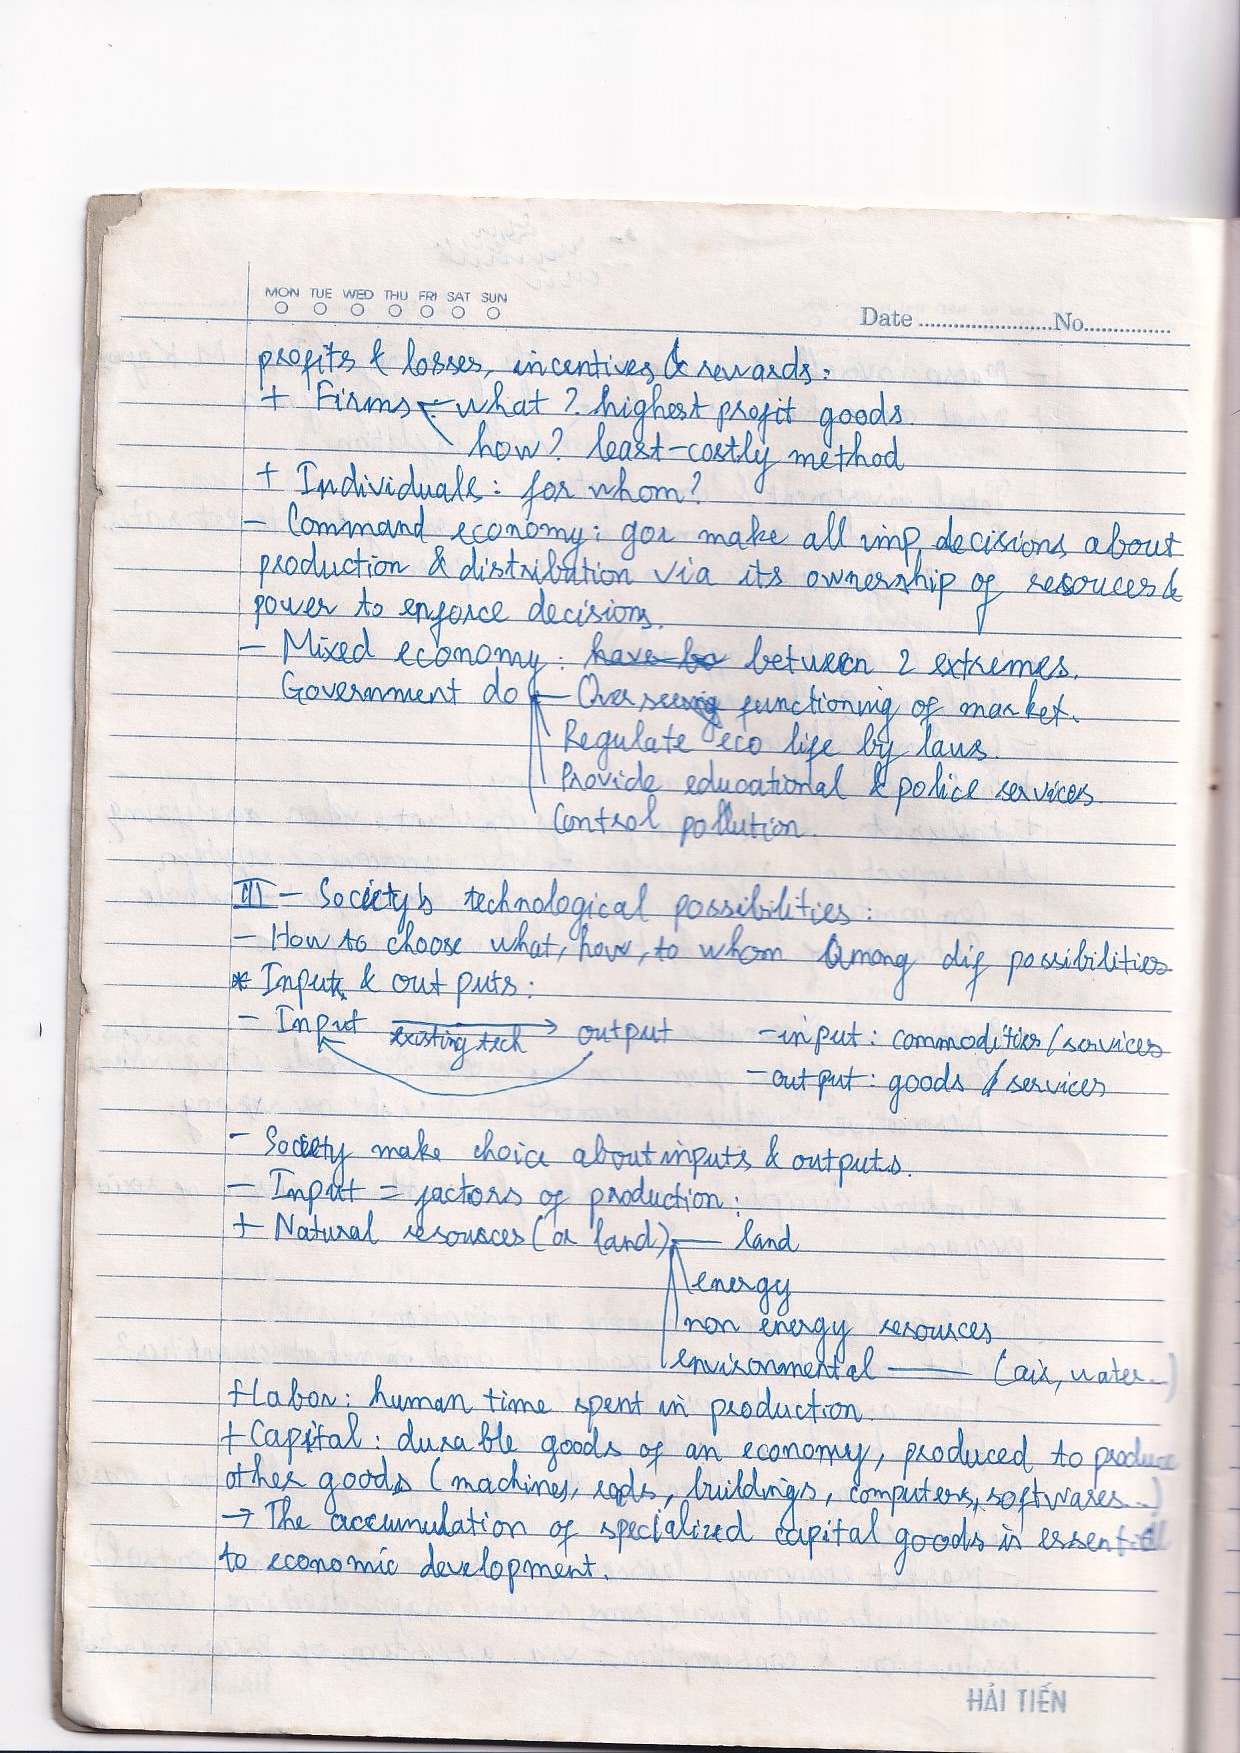 MON TUE WED THU FRI SAT SUN
Date ........................No................
profits & losses, incentives & rewards:
+ Firms what? highest profit goods.
how? least-costly method
+ Individuals: for whom?
- Command economy: gov make all imp. decisions about
production & distribution via its ownership of resouces &
power to enforce decisions.
- Mixed economy: have bo between 2 extremes.
Government do Overseeing functioning of market.
Regulate eco life by laws.
Provide educational & police services.
Control pollution.
III - Society's technological possibilities:
- How to choose what, how, to whom among dif possibilities.
* Inputs & outputs:
- Input existing tech output - input: commodities/services
- output: goods & services
- Society make choice about inputs & outputs.
- Input = factors of production:
+ Natural resources (or land) land
energy
non energy resources
environmental (air, water...)
+ Labor: human time spent in production.
+ Capital: durable goods of an economy, produced to produce
other goods (machines, roads, buildings, computers, softwares...)
→ The accumulation of specialized capital goods is essential
to economic development.
HẢI TIẾN